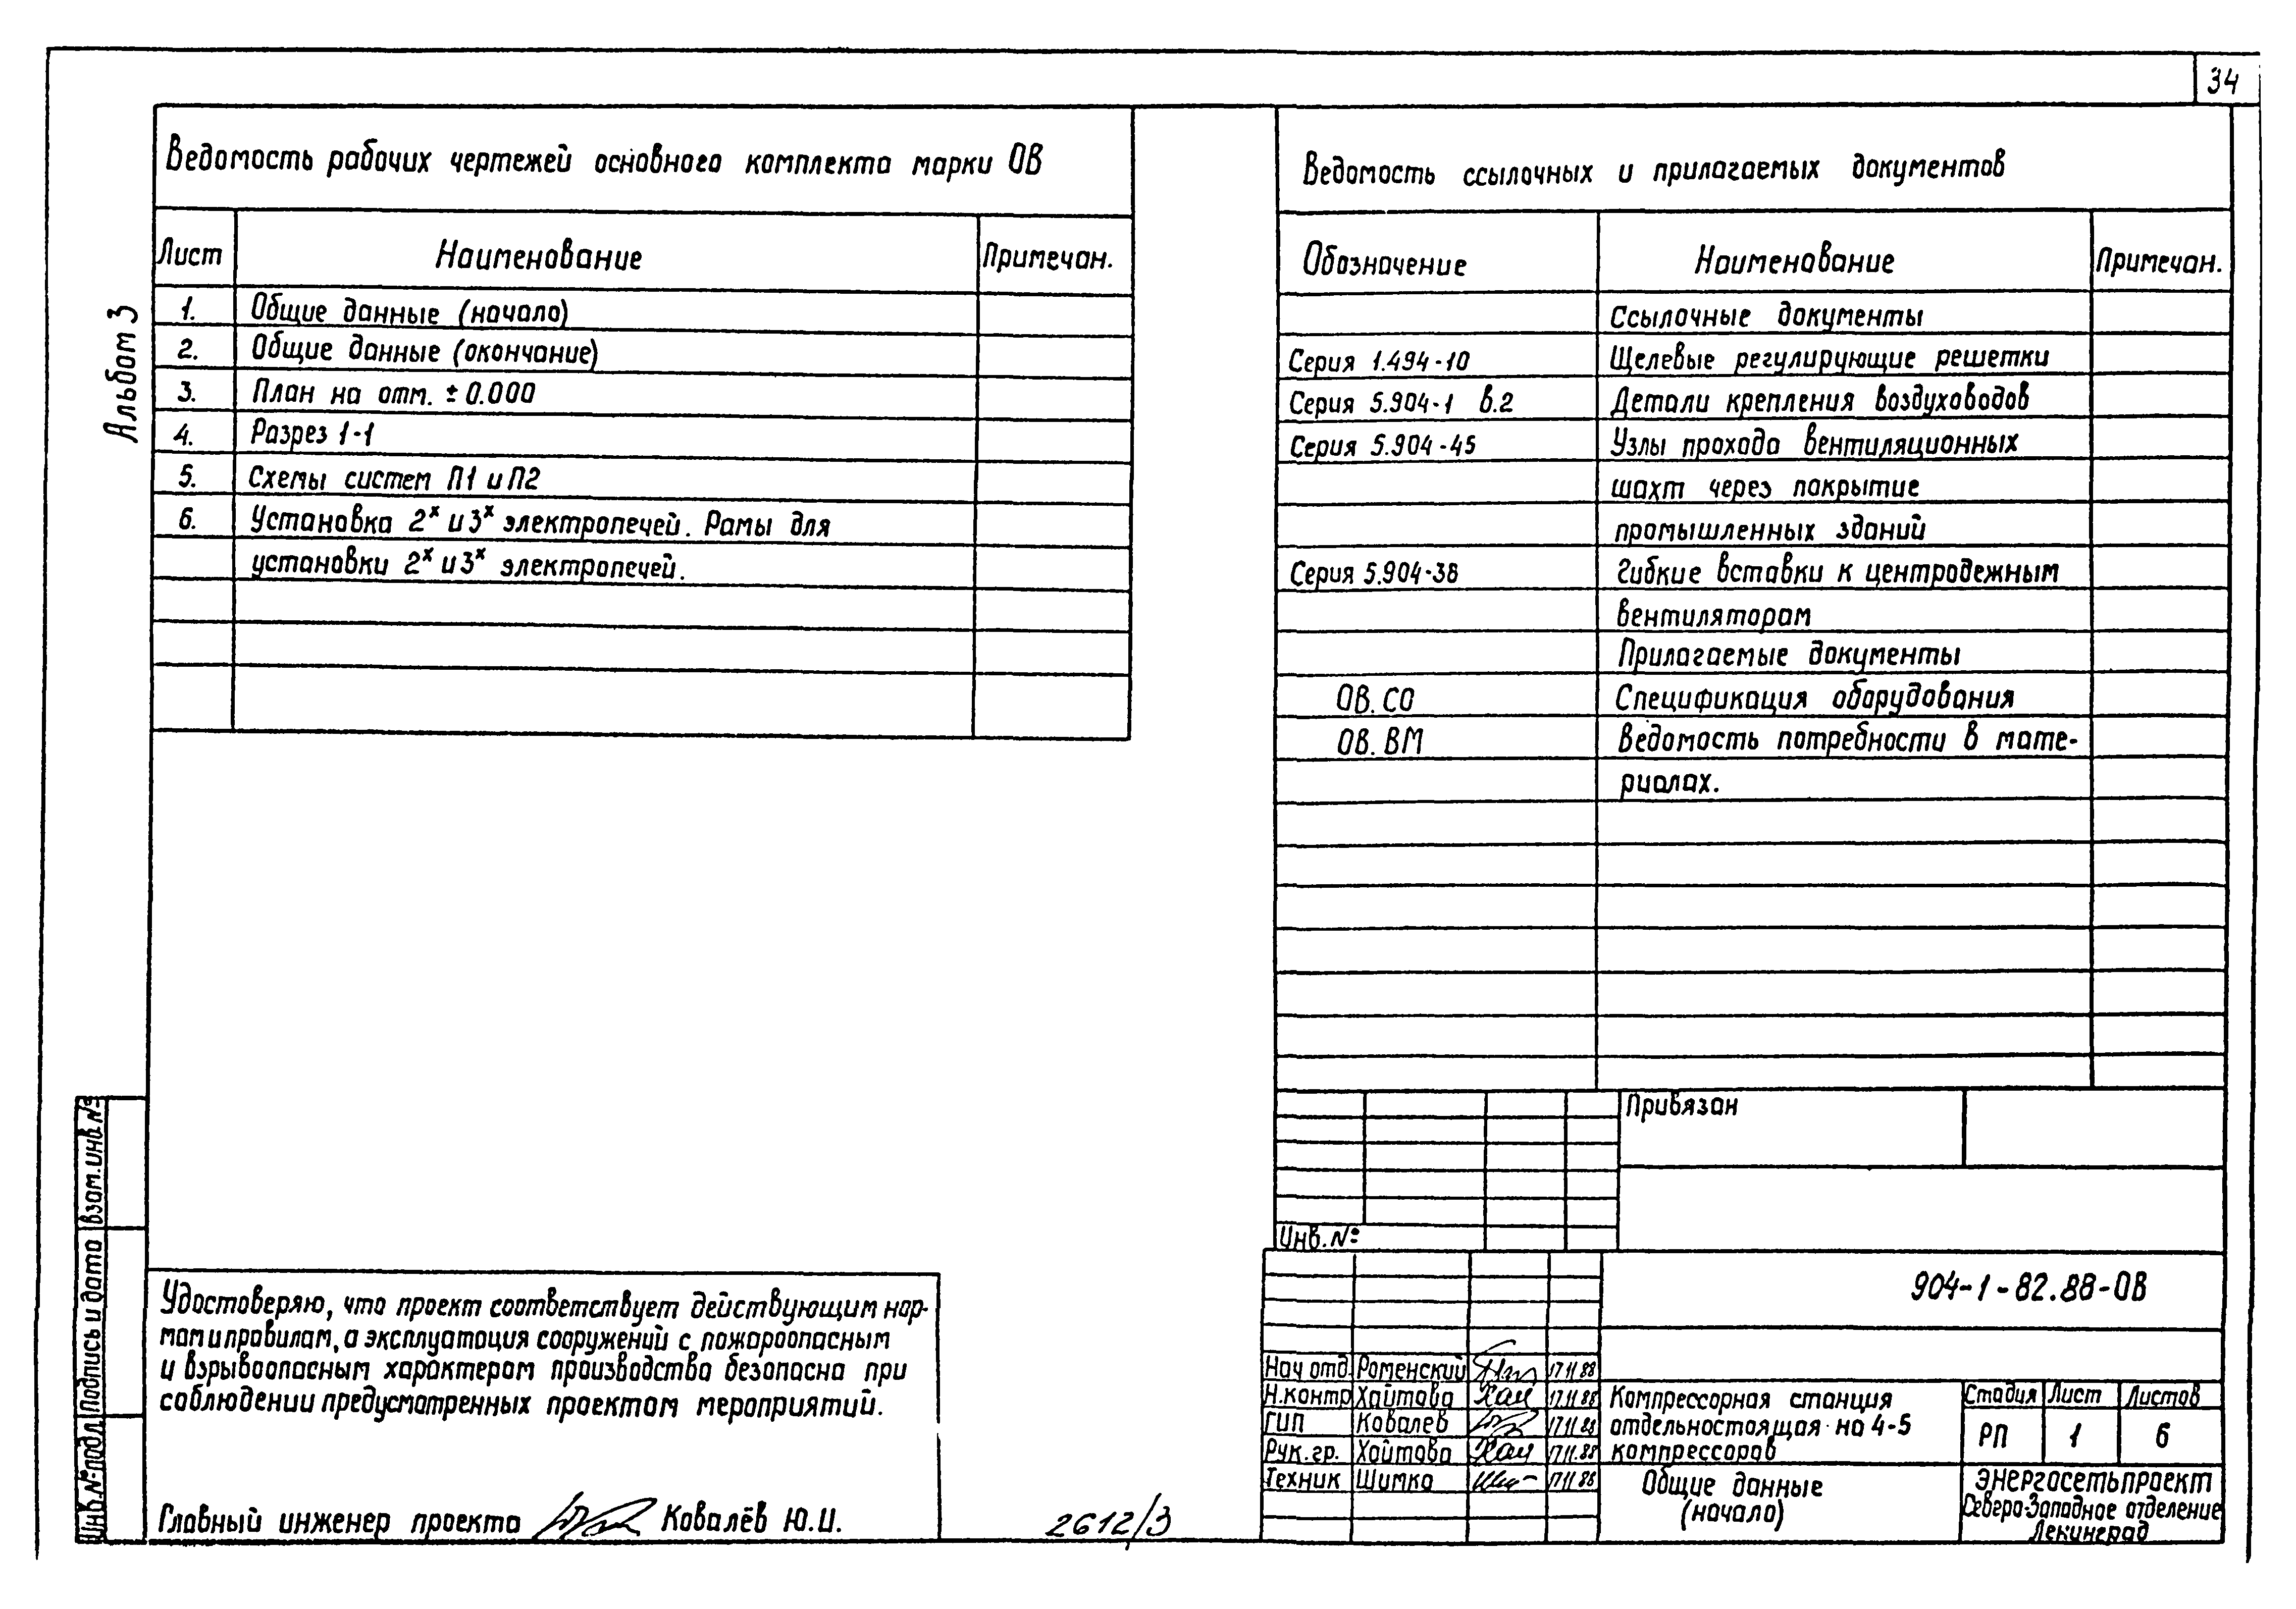 34
Альбом 3
Ведомость рабочих чертежей основного комплекта марки ОВ
Лист Наименование Примечан.
1. Общие данные (начало)
2. Общие данные (окончание)
3. План на отм. ± 0.000
4. Разрез 1-1
5. Схемы систем П1 и П2
6. Установка 2ˣ и 3ˣ электропечей. Рамы для
установки 2ˣ и 3ˣ электропечей.
Ведомость ссылочных и прилагаемых документов
Обозначение Наименование Примечан.
Ссылочные документы
Серия 1.494-10 Щелевые регулирующие решетки
Серия 5.904-1 в.2 Детали крепления воздуховодов
Серия 5.904-45 Узлы прохода вентиляционных
шахт через покрытие
промышленных зданий
Серия 5.904-38 Гибкие вставки к центродежным
вентиляторам
Прилагаемые документы
ОВ. СО Спецификация оборудования
ОВ. ВМ Ведомость потребности в мате-
риалах.
Привязан
Инв. №
904-1-82.88-ОВ
Нач отд Роменский 17.11.88
Н.контр Хаитова 17.11.88
ГИП Ковалев 17.11.88
Рук.гр. Хаитова 17.11.88
Техник Шимко 17.11.88
Компрессорная станция
отдельностоящая на 4-5
компрессоров
Стадия Лист Листов
РП 1 6
Общие данные
(начало)
Энергосетьпроект
Северо-Западное отделение
Лекинград
Удостоверяю, что проект соответствует действующим нор-
мам и правилам, а эксплуатация сооружений с пожароопасным
и взрывоопасным характером производства безопасна при
соблюдении предусмотренных проектом мероприятий.
Главный инженер проекта Ковалёв Ю.И.
2612/3
Взам. инв. №
Подпись и дата
Инв. № подл.